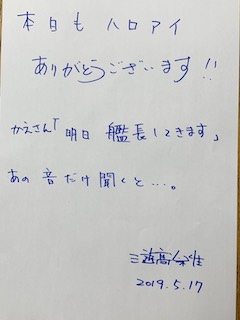 本日も ハロアイ
ありがとうございます!!
かえさん「明日 艦長してきます」
あの 音だけ聞くと…。
2019.5.17